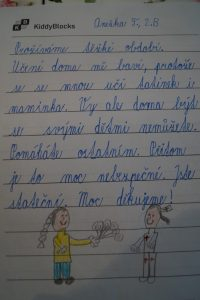 KiddyBlocks
Anežka Š., 2.B
Prožíváme těžké období.
Učení doma mě baví, protože
se se mnou učí tatínek i
maminka. Vy ale doma být
se svými dětmi nemůžete.
Pomáháte ostatním. Přitom
je to moc nebezpečné. Jste
stateční. Moc děkujeme!